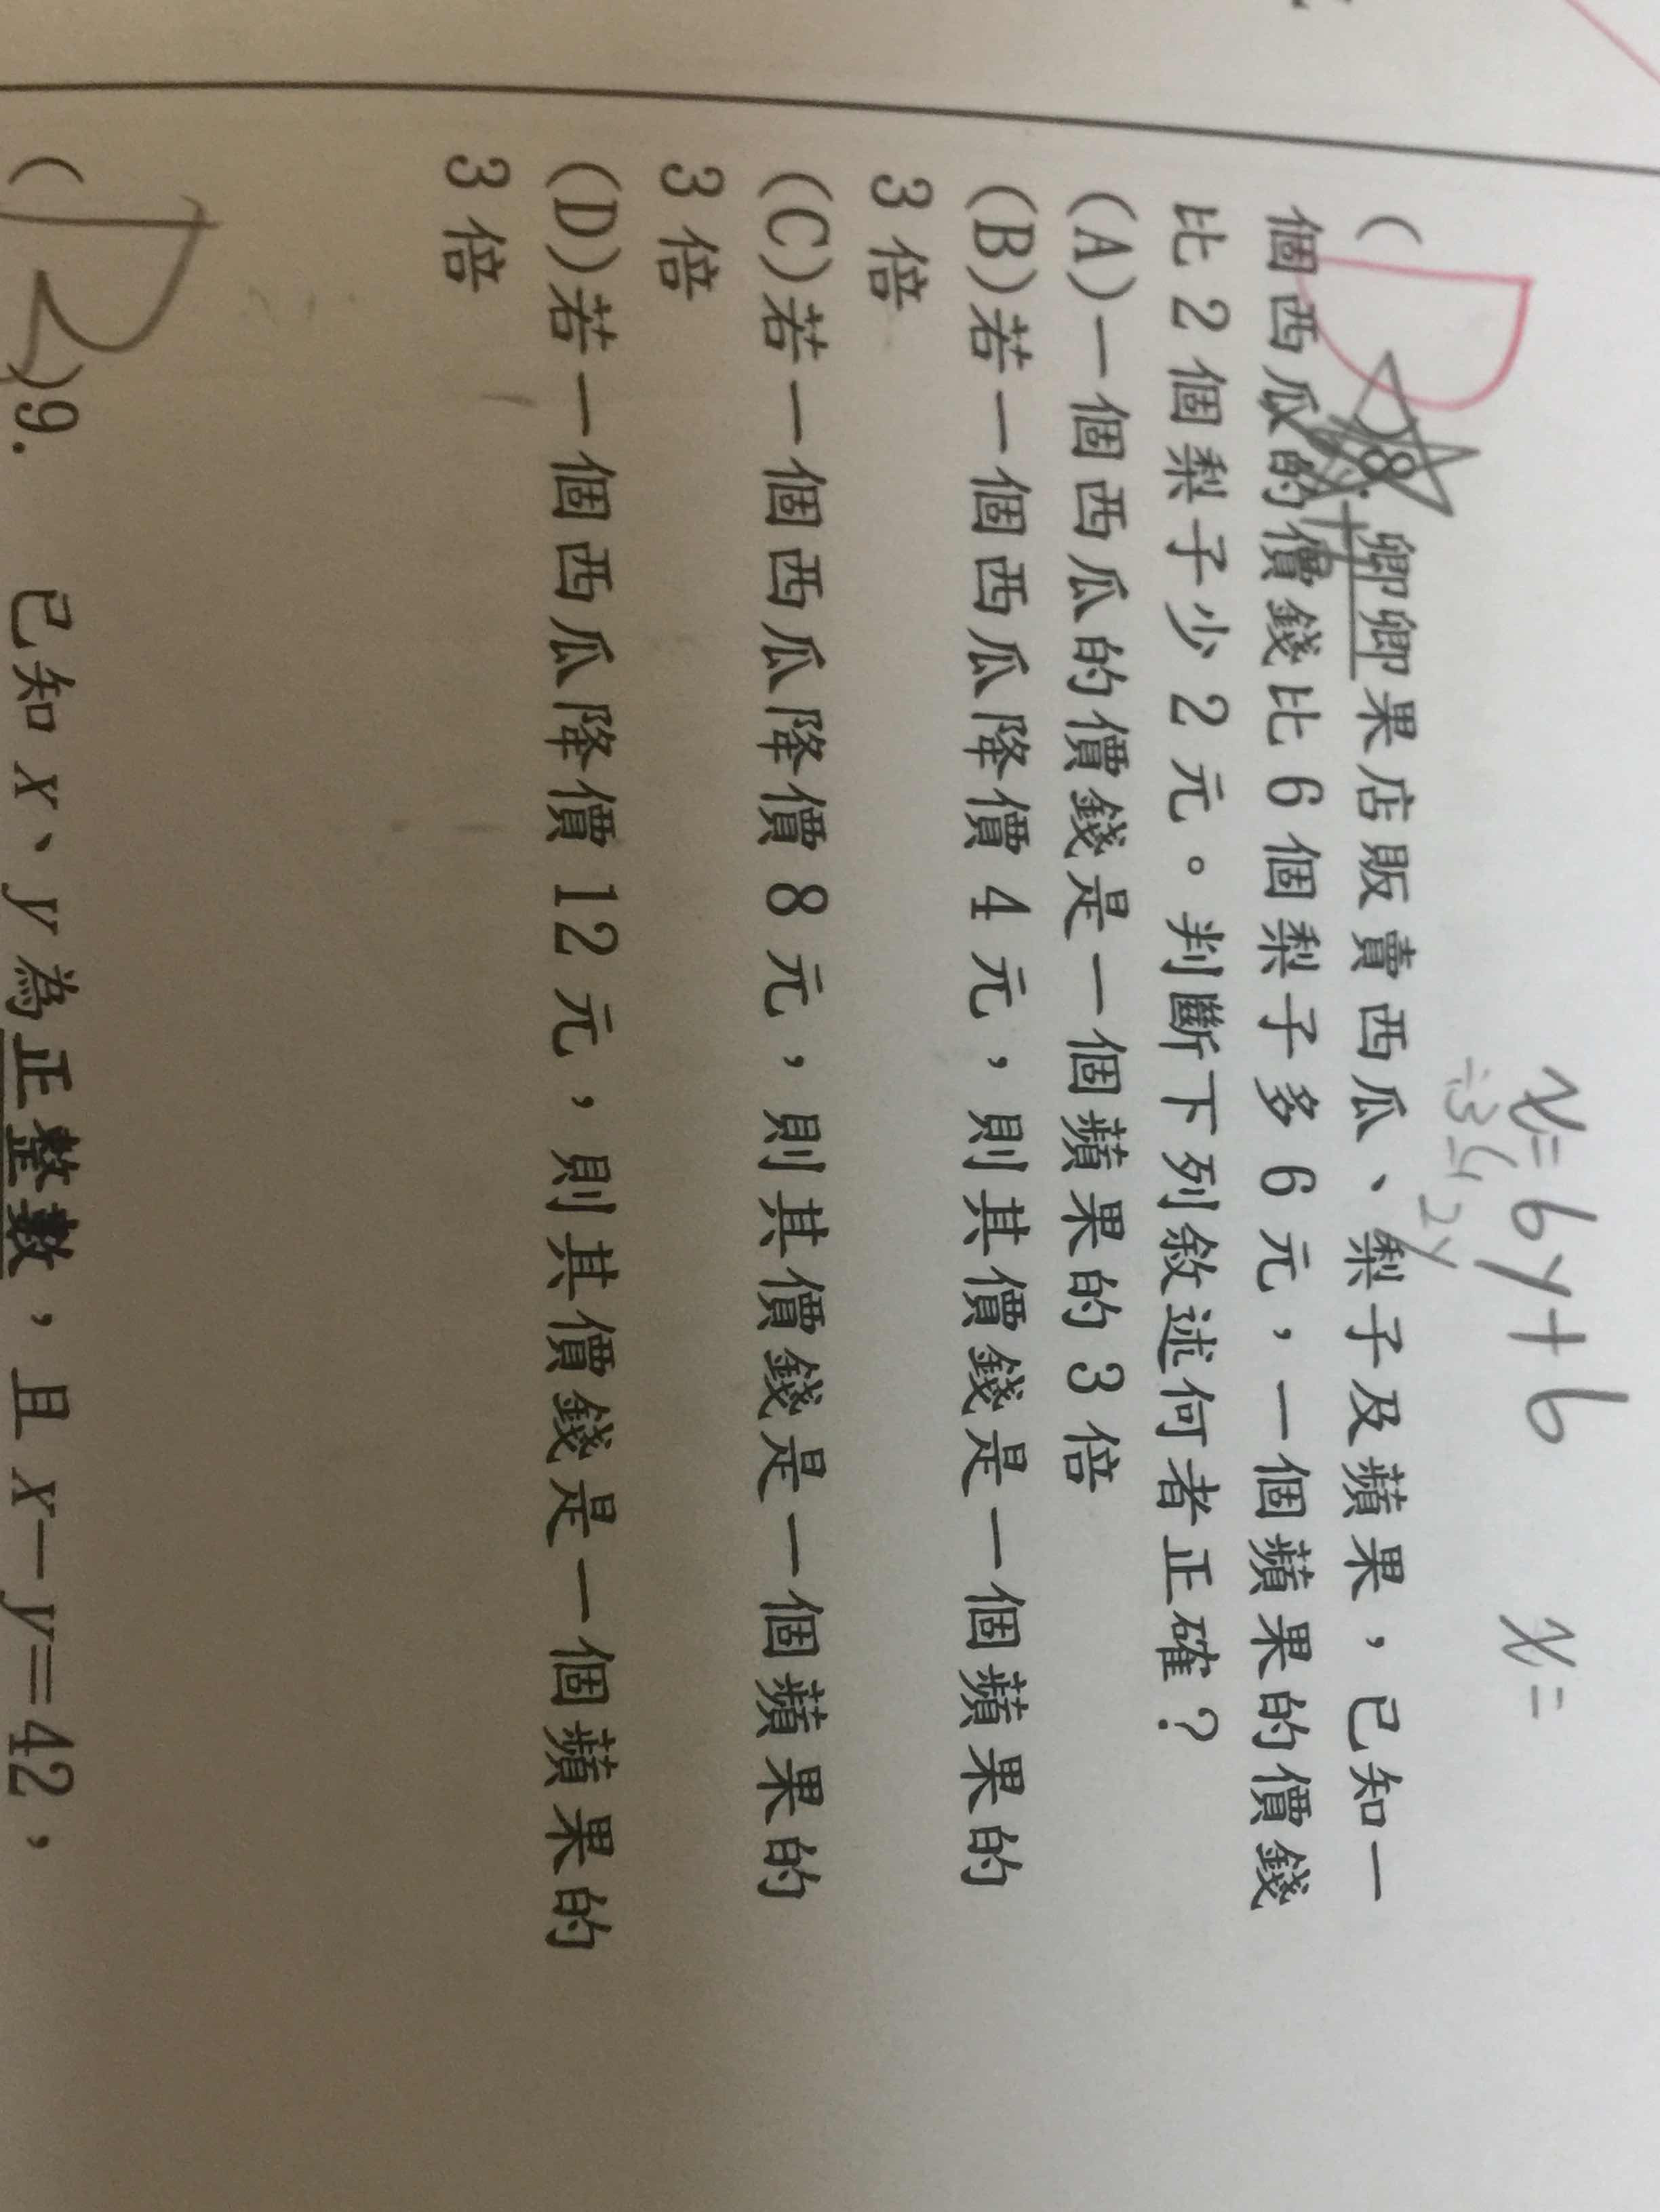 x=6y+6 x=
÷3
2y
(D)8. 卿卿果店販賣西瓜、梨子及蘋果，已知一
個西瓜的價錢比 6 個梨子多 6 元，一個蘋果的價錢
比 2 個梨子少 2 元。判斷下列敘述何者正確？
(A)一個西瓜的價錢是一個蘋果的 3 倍
(B)若一個西瓜降價 4 元，則其價錢是一個蘋果的
3 倍
(C)若一個西瓜降價 8 元，則其價錢是一個蘋果的
3 倍
(D)若一個西瓜降價 12 元，則其價錢是一個蘋果的
3 倍
( )9. 已知 x、y 為正整數，且 x－y=42，